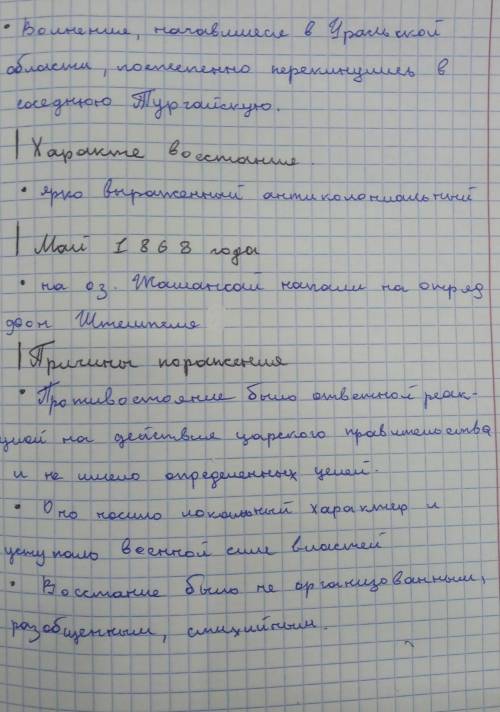 • Волнение, начавшиеся в Уральской
области, постепенно перекинулись в
соседнюю Тургайскую.
Характе восстание.
• ярко выраженный антиколониальный
Май 1868 года
• на оз. Жамансай напали на отряд
фон Штемпеля
Причины поражения
• Противостояние было ответной реак-
цией на действия царского правительства
и не имело определенных целей.
• Оно носило локальный характер и
уступало военной силе властей
• Восстание было не организованным,
разобщенным, стихийным.